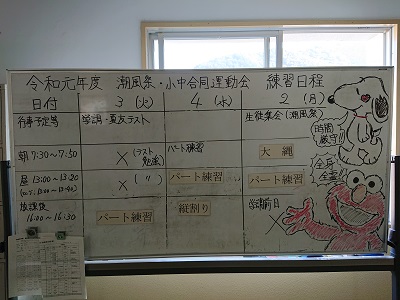 令和元年度 潮風祭・小中合同運動会 練習日程
日付 3(火) 4(水) 2(月)
行事予定等 学調・夏友テスト 生徒集会(潮風祭)
時間厳守!!
朝 7:30~7:50 ×(テスト勉強) パート練習 大縄
全身全霊!!
昼 13:00~13:20 ×(〃) パート練習 パート練習
放課後 16:00~16:30 パート練習 縦割り ×